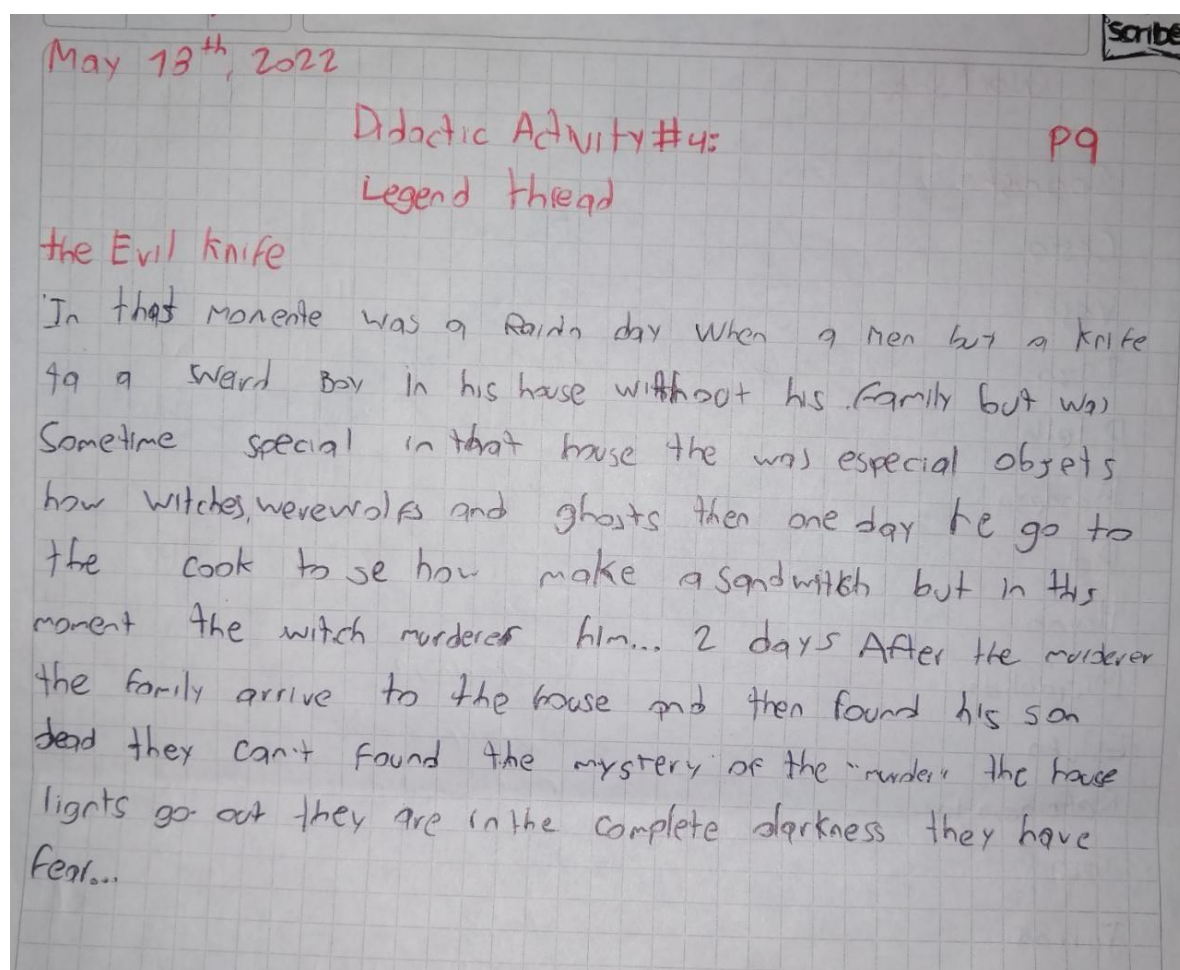 scribe
May 13th, 2022
Didactic Activity #4:
P9
Legend thread
the Evil knife
In that Monente was a Rainn day When a men buy a knife
to a Sweird Boy in his house without his family but was
Sometime special in that house the was especial objets
how witches, werewolfs and ghosts then one day he go to
the cook to se how make a sandwitch but in this
moment the witch murderer him... 2 days After the murderer
the family arrive to the house and then found his son
dead they can't found the mystery of the "murder" the house
lights go out they are in the complete darkness they have
fear...